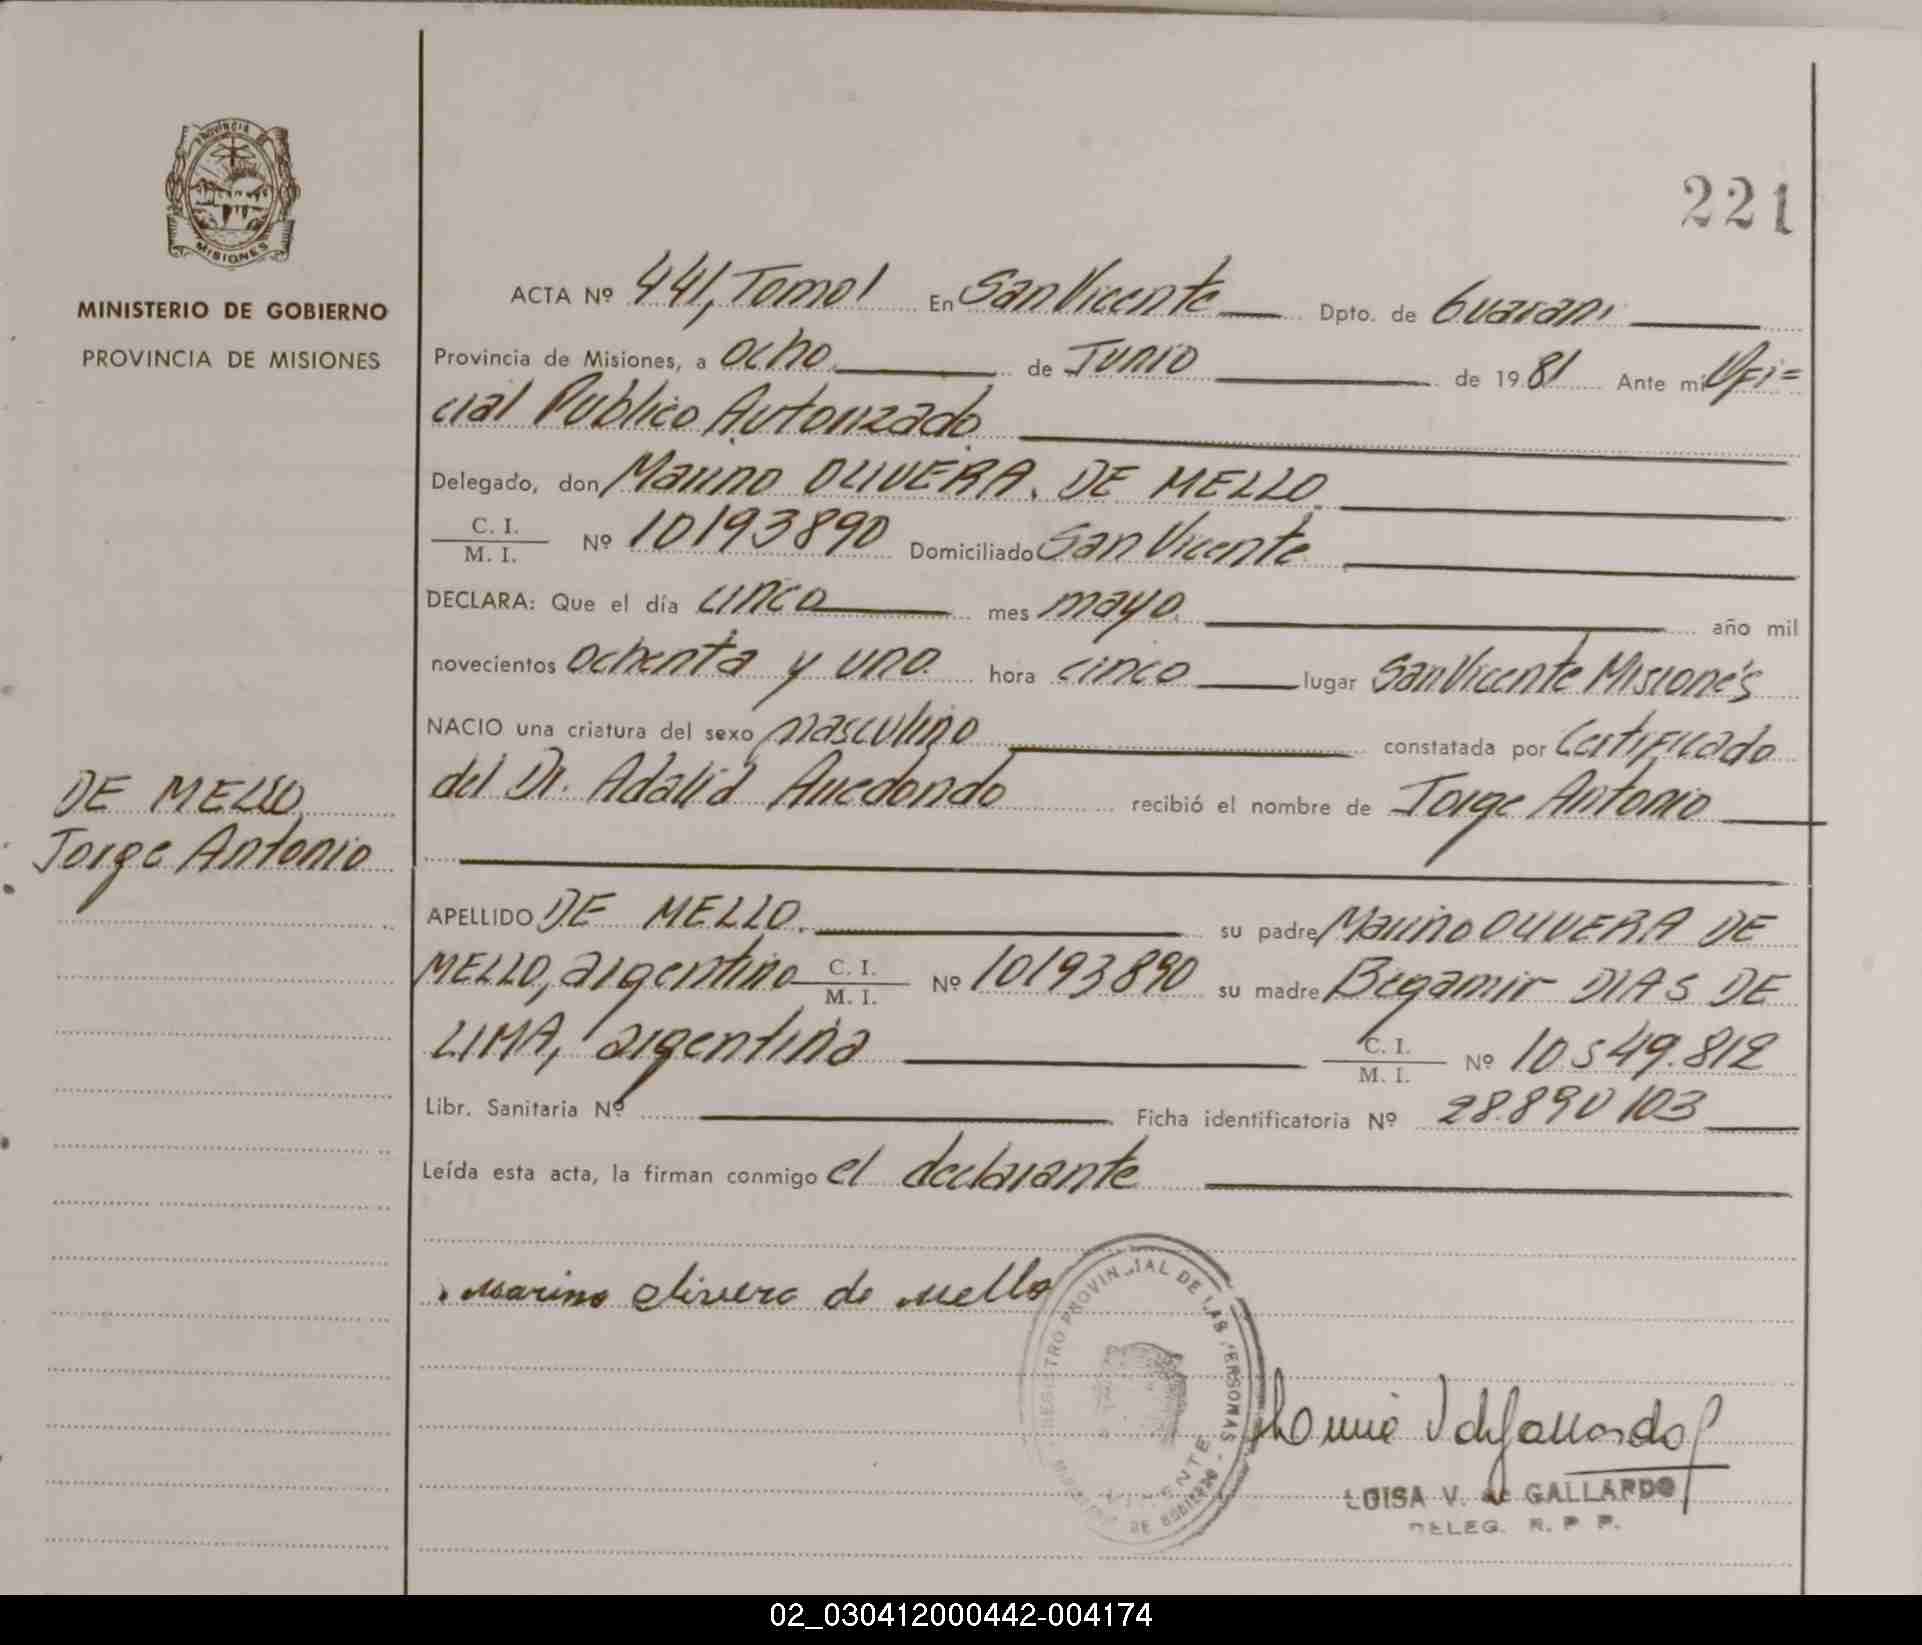 PROVINCIA DE
MISIONES
MINISTERIO DE GOBIERNO
PROVINCIA DE MISIONES
221
ACTA Nº 441, Tomo I En San Vicente Dpto. de Guarani
Provincia de Misiones, a ocho de Junio de 1981 Ante mi Ofi=
cial Publico Autorizado
Delegado, don Marino OLIVERA. DE MELLO
C. I.
M. I. Nº 10193890 Domiciliado San Vicente
DECLARA: Que el día cinco mes mayo. año mil
novecientos ochenta y uno. hora cinco lugar San Vicente Misiones
NACIO una criatura del sexo masculino constatada por Certificado
del Dr. Adalid Arredondo recibió el nombre de Jorge Antonio
DE MELLO
Jorge Antonio
APELLIDO DE MELLO. su padre Marino OLIVERA DE
MELLO, argentino C. I.
M. I. Nº 10193890 su madre Begamir DIAS DE
LIMA, argentina C. I.
M. I. Nº 10.549.812
Libr. Sanitaria Nº Ficha identificatoria Nº 28.890 103
Leída esta acta, la firman conmigo el declarante
Marino olivera de mello
REGISTRO PROVINCIAL DE LAS PERSONAS - DE GOBIERNO
VICENTE
LUISA V. de GALLARDO
DELEG. R. P. P.
02_030412000442-004174